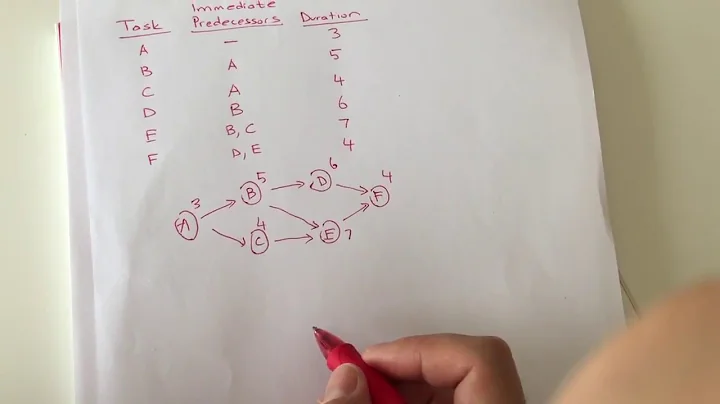 Task Immediate Predecessors Duration
A — 3
B A 5
C A 4
D B 6
E B, C 7
F D, E 4
3 A
5 B
6 D
4 F
4 C
E 7